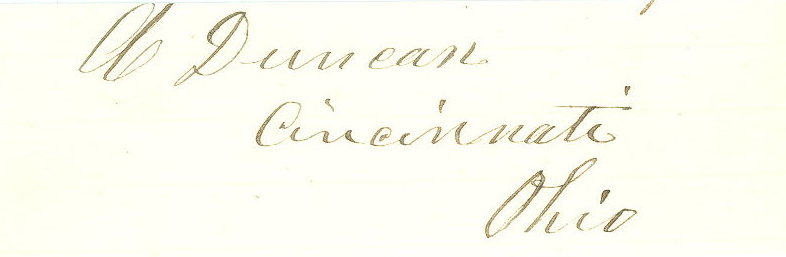 A Duncan
Cincinnati
Ohio